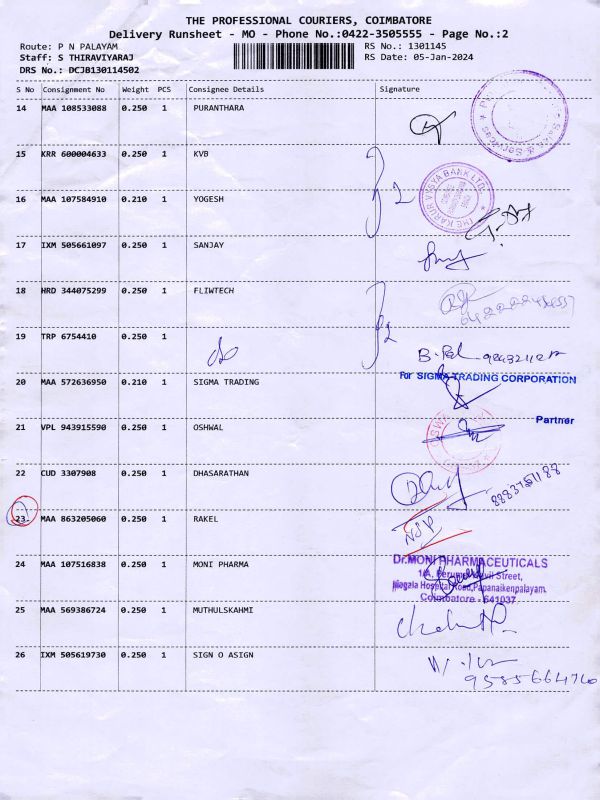 THE PROFESSIONAL COURIERS, COIMBATORE
Delivery Runsheet - MO - Phone No.:0422-3505555 - Page No.:2
Route: P N PALAYAM
RS No.: 1301145
Staff: S THIRAVIYARAJ
RS Date: 05-Jan-2024
DRS No.: DCJB130114502
S No Consignment No Weight PCS Consignee Details Signature
14 MAA 108533088 0.250 1 PURANTHARA
15 KRR 600004633 0.250 1 KVB
16 MAA 107584910 0.210 1 YOGESH
THE KARUR VYSYA BANK LTD
17 IXM 505661097 0.250 1 SANJAY
18 HRD 344075299 0.250 1 FLIWTECH
19 TRP 6754410 0.250 1
20 MAA 572636950 0.210 1 SIGMA TRADING
For SIGMA TRADING CORPORATION
Partner
21 VPL 943915590 0.250 1 OSHWAL
22 CUD 3307908 0.250 1 DHASARATHAN
23 MAA 863205060 0.250 1 RAKEL
24 MAA 107516838 0.250 1 MONI PHARMA
Dr.MONI PHARMACEUTICALS
Street,
Road,Papanaikenpalayam.
Coimbatore - 641037
25 MAA 569386724 0.250 1 MUTHULSKAHMI
26 IXM 505619730 0.250 1 SIGN O ASIGN